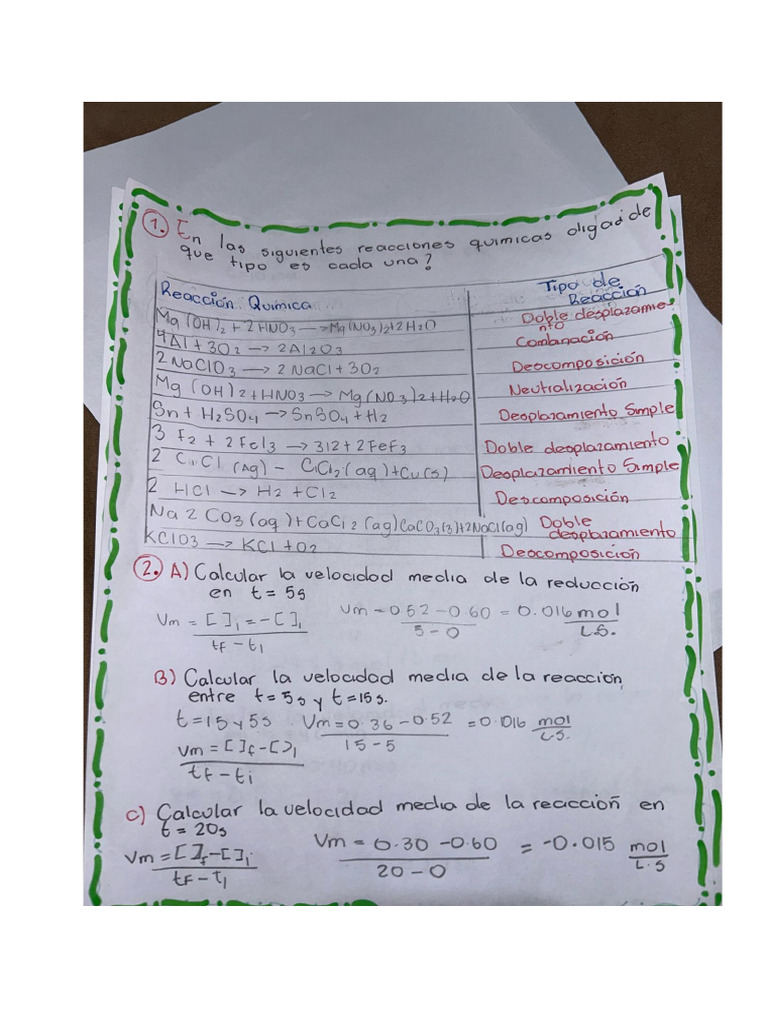 1. En las siguientes reacciones quimicas digad de
que tipo es cada una?
Reacción Química Tipo de Reacción
Mg(OH)2 + 2HNO3 → Mg(NO3)2+2H2O Doble desplazamiento
4Al + 3O2 → 2Al2O3 Combinación
2NaClO3 → 2NaCl + 3O2 Descomposición
Mg(OH)2+HNO3 → Mg(NO3)2+H2O Neutralización
Sn + H2SO4 → SnSO4 + H2 Desplazamiento Simple
3 F2 + 2FeI3 → 3I2 + 2FeF3 Doble desplazamiento
2 CuCl (Ag) - CuCl2 (aq) + Cu(s) Desplazamiento Simple
2 HCl → H2 + Cl2 Descomposición
Na2CO3(aq) + CaCl2 (aq) CaCO3(s)+2NaCl(aq) Doble desplazamiento
KClO3 → KCl + O2 Descomposición
2. A) Calcular la velocidad media de la reducción
en t = 5s
Vm = [ ]i = -[ ]i / tf - ti Vm = 0.52 - 0.60 / 5 - 0 = 0.016 mol / L.S.
B) Calcular la velocidad media de la reaccion
entre t = 5s y t = 15s.
t = 15 y 5s Vm = 0.36 - 0.52 / 15 - 5 = 0.016 mol / L.S.
Vm = [ ]f - [ ]i / tf - ti
C) Calcular la velocidad media de la reacción en
t = 20s
Vm = [ ]f - [ ]i / tf - ti Vm = 0.30 - 0.60 / 20 - 0 = -0.015 mol / L.S